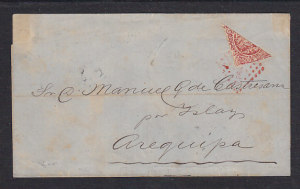 Sr. C. Manuel G de Castresana
por Islay
Arequipa